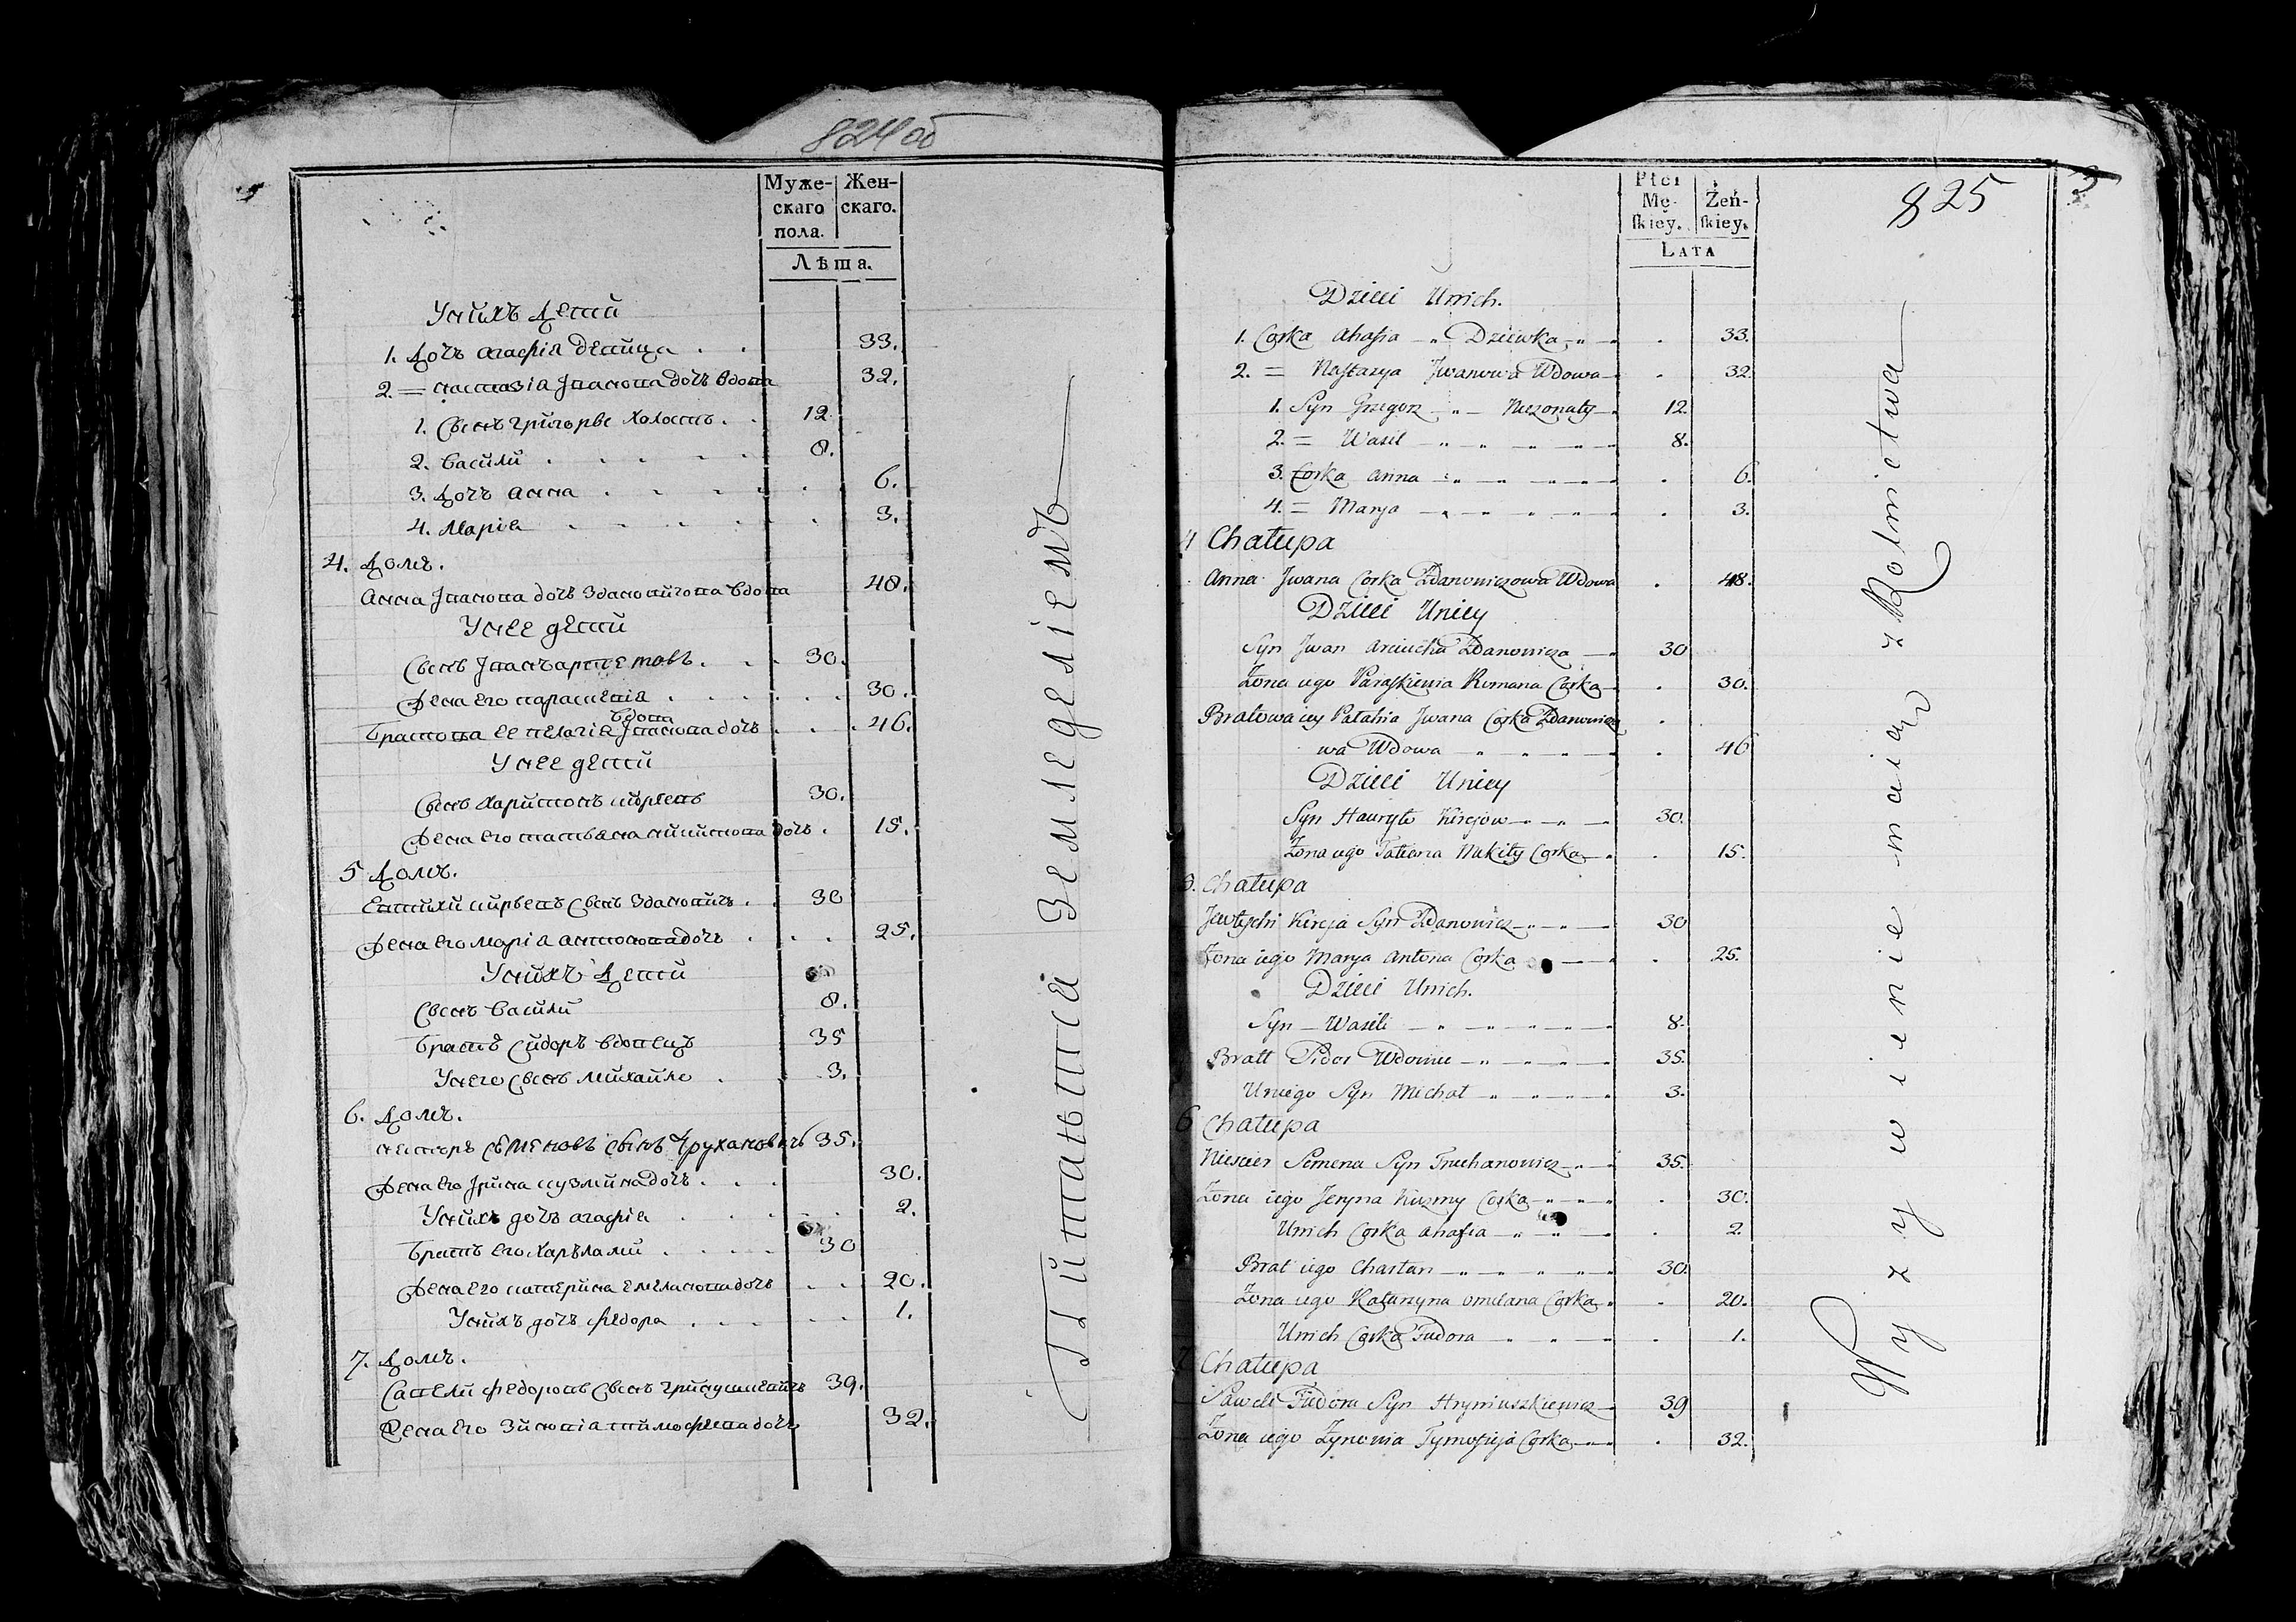 824об
Муже-
скаго
пола.
Жен-
скаго.
Лѣта.
У нихъ дети
1. Дочъ агафиа девица . . 33.
2. = настазіа Іванова дочъ вдова 32.
1. Сынъ григорье холостъ . . 12.
2. васили . . . . . 8.
3. Дочъ анна . . . . . 6.
4. Маріа . . . . . . 3.
4. Домъ.
Анна Іванова дочъ Здановичова вдова 48.
У нее дети
Сынъ Іванъ артемовъ . . . 30.
Жена его парасквиа . . . . . 30.
вдова
Братова ее пелагиа Іванова дочъ . . . 46.
У нее дети
Сынъ харитонъ кирѣевъ 30.
Жена его татьяна никитова дочъ . 15.
5 Домъ.
Евтихи кирѣевъ сынъ Зданович . . 30
Жена его маріа антонова дочъ . . . 25.
У нихъ Дети
Сынъ васили 8.
Братъ сидоръ вдовецъ 35
У него сынъ михайло . . 3.
6. Домъ.
нестеръ семеновъ сынъ Трухановичъ 35.
Жена его Ірина кузмина дочъ . . . 30.
У нихъ дочъ агафиа . . . . 2.
Братъ его харълами . . . . 30
Жена его катерина емелианова дочъ . . 20.
У нихъ дочъ федора . . . . . 1.
7. Домъ.
Савели федоровъ сынъ гринушкевичъ 39.
Жена его Зиновіа тимофеева дочъ 32.
Питаются Земледеліемъ
3
825
Płci
Mę-
ſkiey.
Żeń-
ſkiey.
LATA
Dzieci Unich.
1. Corka Ahafia - " Dziewka - " - . 33.
2. = Nastazya Jwanowa Wdowa . 32
1. Syn Grzegorz - " - Niezonaty 12.
2. = Wasil - " - " - " - " 8.
3. Corka Anna - " - " - " - " . 6.
4. = Marya - " - " - " - " . 3.
4 Chałupa
Anna Jwana Corka Zdanowiczowa Wdowa . 48.
Dzieci Uniey
Syn Jwan Arciucha Zdanowicza 30
Żona iego Paraskiewia Romana Corka . 30.
Bratowa iey Palahia Jwana Corka Zdanowiczo .
wa Wdowa - " - " - " - " . 46
Dzieci Uniey
Syn Hauryło Kirejow - " - " 30.
Żona iego Tatiana Nikity Corka - " . 15.
5. Chałupa
Jewtychi Kireja Syn Zdanowicz - " - " 30
Żona iego Marya Antona Corka . 25.
Dzieci Unich.
Syn - Wasili - " - " - " - " 8.
Bratt Sidor Wdowiec - " - " - " 35.
Uniego Syn Michał - " - " - " 3.
6 Chałupa
Niescier Semena Syn Truchanowicz - " 35.
Żona iego Jeryna Kuzmy Corka - " - " . 30.
Unich Corka Ahafia - " - " . 2.
Brat iego Charłan - " - " - " - " 30.
Żona iego Katarzyna Omelana Corka - " . 20.
Unich Corka Fudora - " - " . 1.
7 Chałupa
Saweli Fiudora Syn Hryniuszkiewicz 39
Żona iego Zynowia Tymofieja Corka . 32.
Wyżywienie maią z Rolnictwa